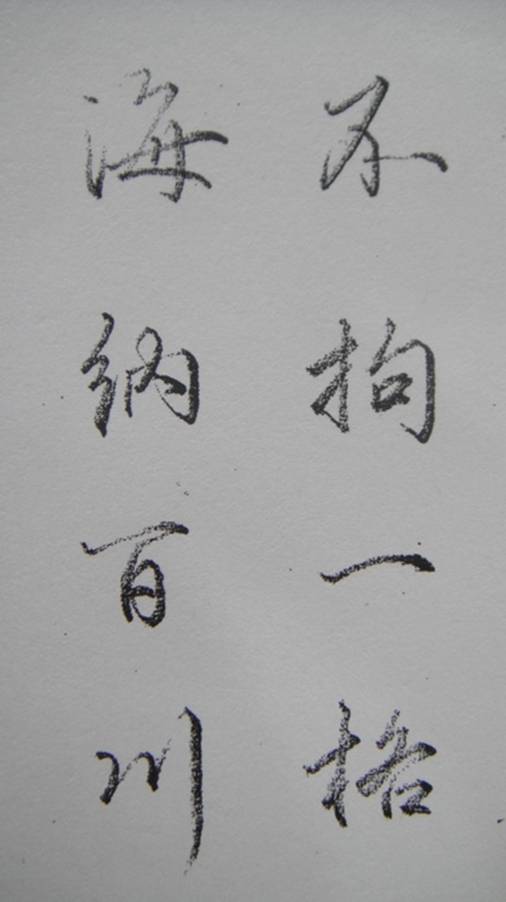 不拘一格
海纳百川